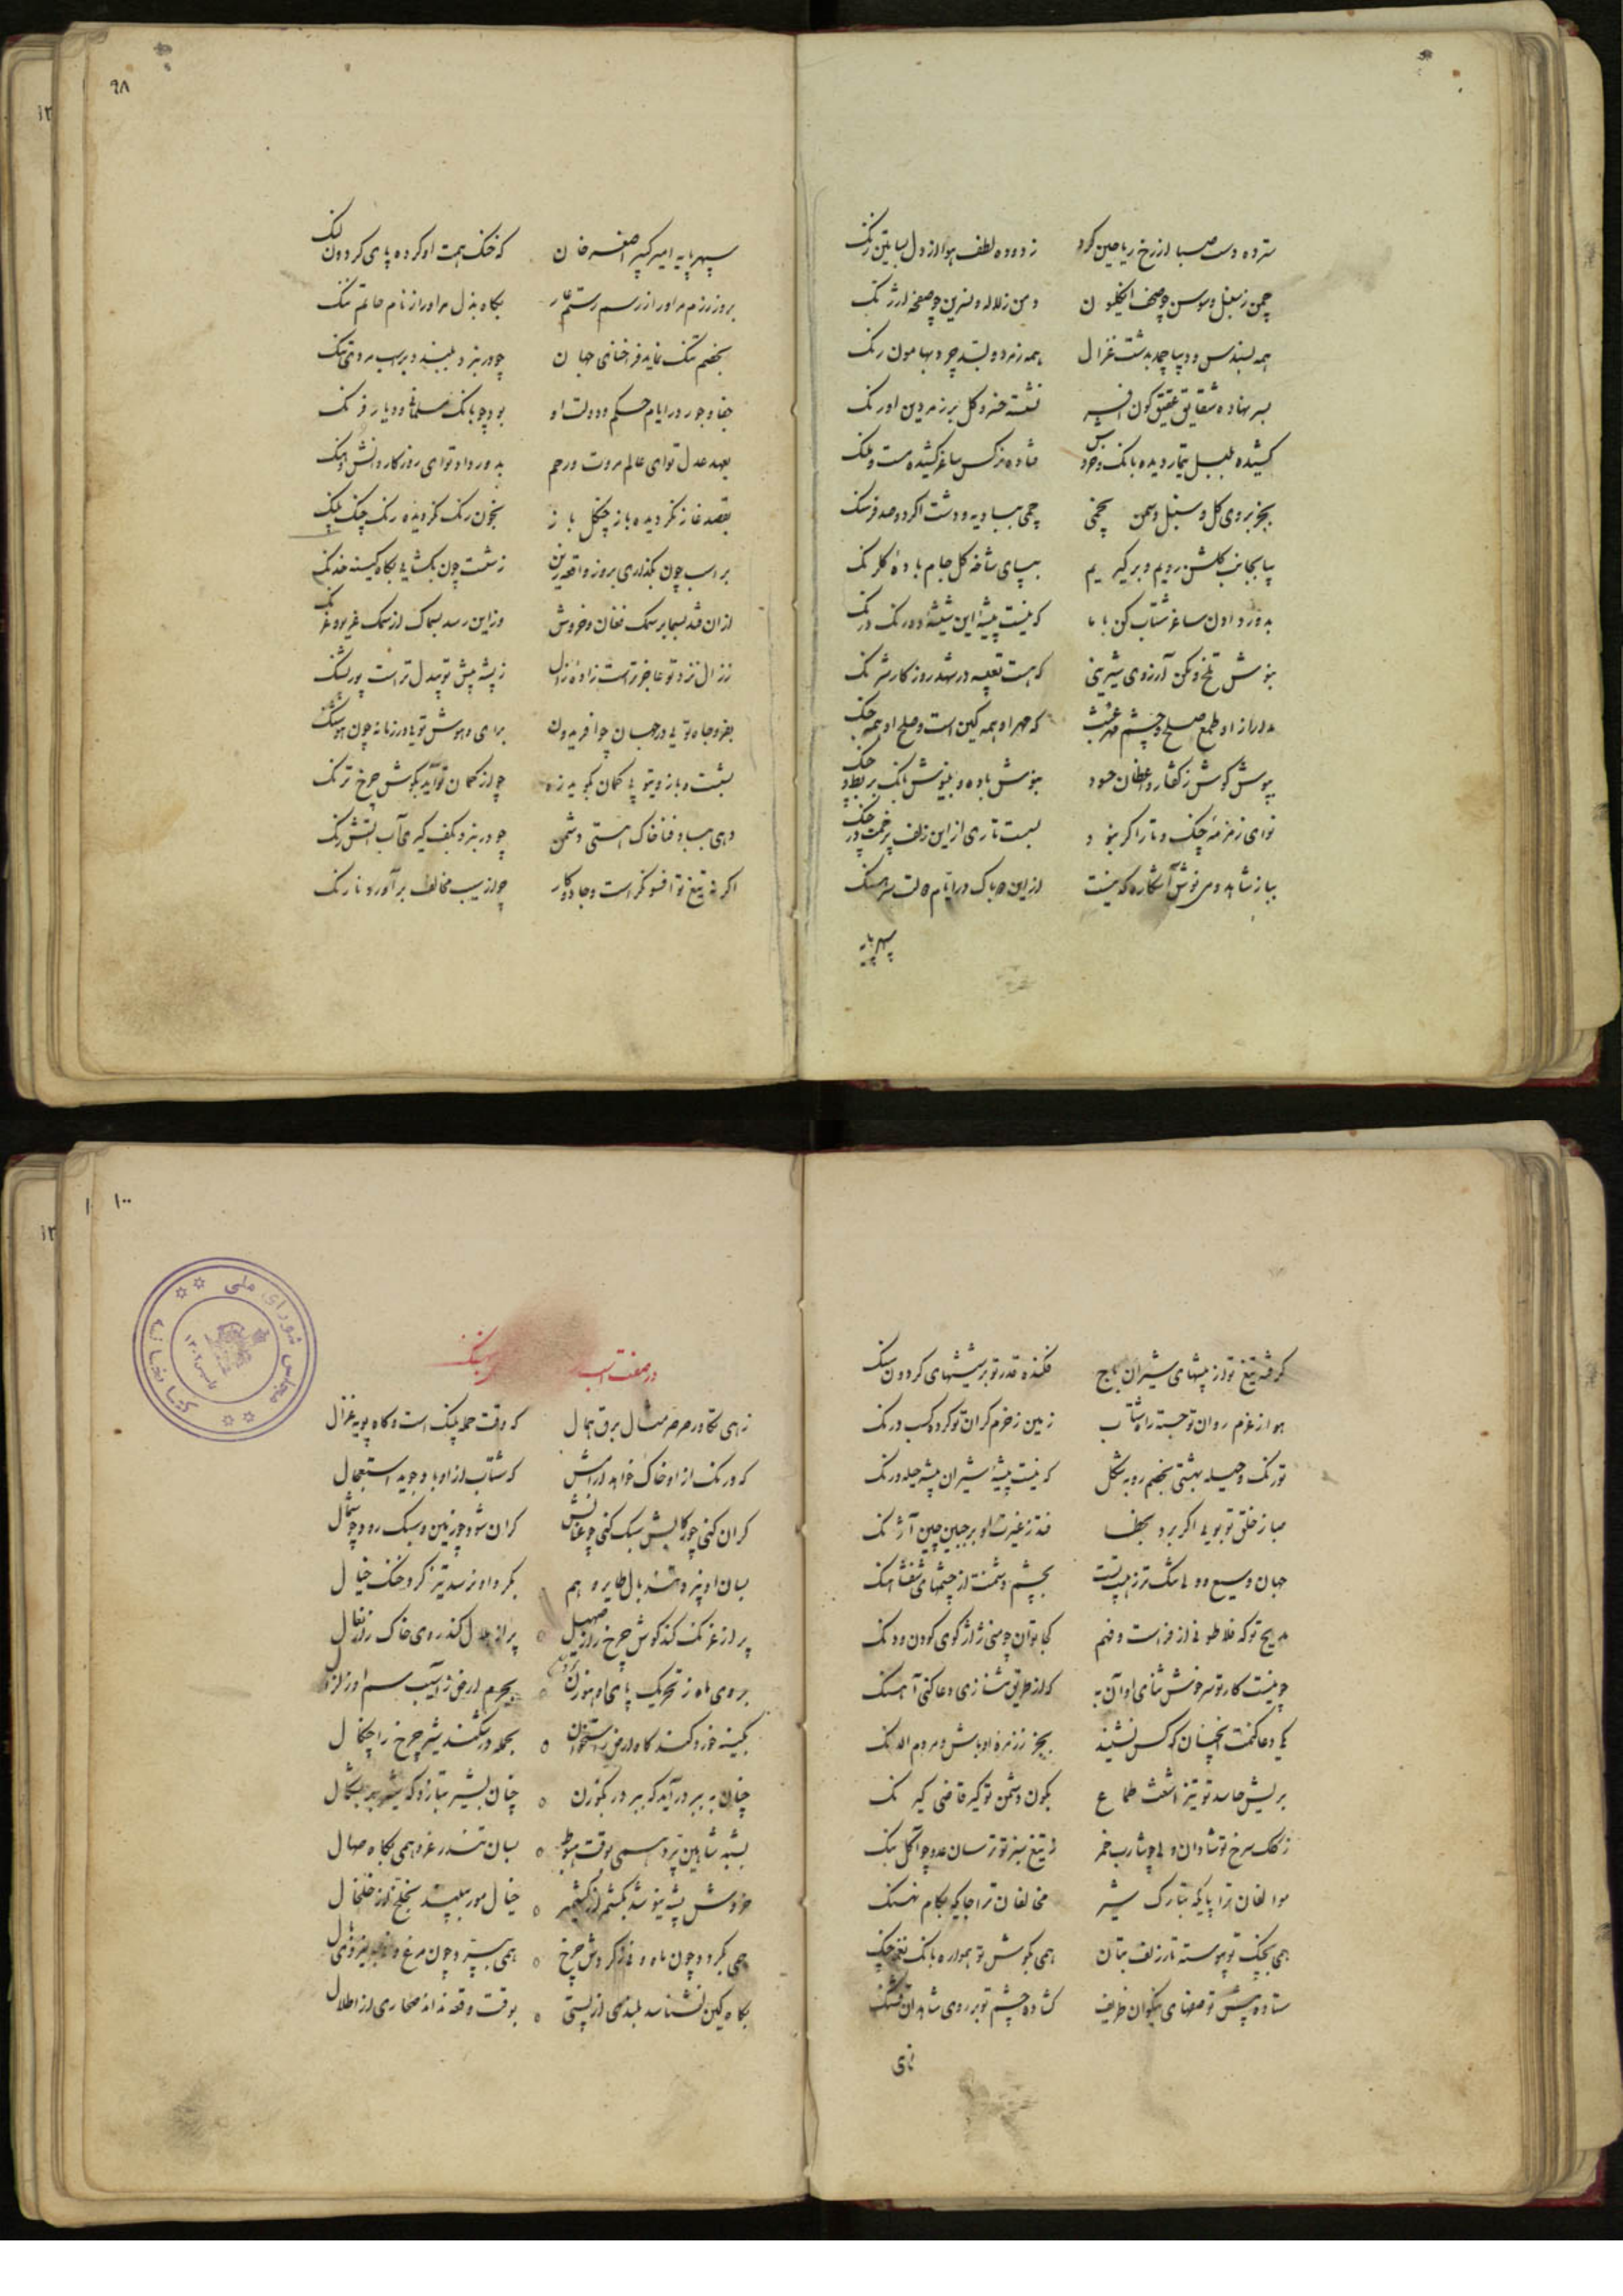 سترده دست صبا از رخ ریاحین کرد زدوده لطف هوا از دل بساتین زنک
چمن ز سنبل و سوسن چو صحف انکلیون دمن ز لاله و نسرین چو صفحه ارژنک
همه بسندس و دیبا چمد بدشت غزال همه زمرد و بسد چرد بهامون رنک
بسر نهاده شقایق عقیق کون افسر نشسته خسرو کل بر زمردین اورنک
کشیده بلبل تیمار دیده بانک و خروش فتاده نرکس ساغر کشیده مست و ملنک
بجز بروی کل و سنبل و سمن نچمی چمی ببادیه و دشت اکر دو صد فرسنک
بیا بجانب کلشن رویم و بر کیریم بپای شاخه کل جام باده کلرنک
بدور دادن ساغر شتاب کن با ما که نیست پیشه این شیشه دورنک درنک
بنوش تلخ و مکن آرزوی شیرینی که هست تعبیه در شهد روزکار شرنک
مدار از او طمع صلح و چشم مهر که مهر او همه کین است و صلح او همه جنک
بپوش کوش ز کفتار واعظان حسود بنوش باده و بنیوش بانک بربط و چنک
نوای زمزمه چنک و تار اکر نبود بست تاری از این زلف پر خم در چنک
بیا ز شاهد و می نوش آشکاره که نیست از این دو باک در ایام دولت سرهنک
سپهر پایه
۹۸
سپهر پایه امیر کبیر اصغر خان که خنک همت او کرده پای کردون لنک
بروز رزم مر او را ز رسم رستم عار بکاه بذل مر او را ز نام حاتم ننک
بخصم تنک نماید فراخنای جهان چو در نبرد ببندد بر اسب مردی تنک
جفا و جور در ایام حکم و دولت او بود چو بانک مسلمانی و دیار فرنک
بعهد عدل تو ای عالم مروت و رحم بدور داد تو ای روزکار دانش و هنک
بقصد غاز نکردیده باز چنکل باز بخون رنک نکردیده رنک چنک پلنک
بر اسب چون بکذاری بروز واقعه زین ز شست چون بکشایی بکاه کینه خدنک
از آن فتد بسما بر سمک فغان و خروش وز این رسد بسماک از سمک غریو و غرنک
ز زال نزد تو عاجزتر است زاده زال ز پشه پیش تو بیدل‌تر است پور پشنک
بفر و جاه تویی در جهان چو افریدون برای و هوش تویی در زمانه چون هوشنک
بشست و بازوی تو بی کمان بکوید زه چو از کمان تو آید بکوش چرخ ترنک
دهی بباد فنا خاک هستی دشمن چو در نبرد بکف کیری آب آتش رنک
اکر نه تیغ تو افسونکر است و جادوکار چو از سیب مخالف بر آورد نارنک
کرفته تیغ تو از بیشهای شیران باج فکنده قدر تو بر شیشهای کردون سنک
هوا ز عزم روان تو جسته راه شتاب زمین ز حزم کران تو کرد کسب درنک
تو رنک و حیله بهشتی بخصم روبه شکل که نیست پیشه شیران بیشه حیله و رنک
صبا ز خلق تو بویی اکر برد بخطا فتد ز غیرت او بر جبین چین آژنک
جهان وسیع ولی تنک‌تر ز هیبت تست بچشم دشمنت از چشمهای هنک
مدیح تو که فلاطونی از فراست و فهم کجا توان چو منی ژاژ کوی کودن و دنک
چو نیست کار تو سرخوش ثنای او آن به که از طریق ثنا زی دعا کنی آهنک
یکی دعا کنمت آنچنان که کس نشنید بجز ز زمره اوباش و مردم الدنک
بریش حاسد تو تیز اشعث طماع بکون دشمن تو کیر قاضی کیرنک
ز کلک سرخ تو شادان ولی چو شارب خمر ز تیغ سبز تو ترسان عدو چو آکل بنک
موالفان ترا پایکه بتارک شیر مخالفان ترا جایکه بکام نهنک
همی بچنک تو پیوسته تار زلف بتان همی بکوش تو همواره بانک نغمه چنک
ستاده پیش تو صفهای نیکوان ظریف کشاده چشم تو بر روی شاهدان قشنک
زهی
۱۰۰
در صفت اسب
زهی تکاور صرصر مثال برق همال که وقت حمله پلنک است و کاه پویه غزال
که درنک از او خاک خواهد آرامش که شتاب از او باد جوید استعجال
کران کنی چو رکابش سبک کنی چو عنانش کران شود چو زمین و سبک رود چو شمال
بسان او نپرد تند بال طایر وهم بکرد او نرسد تیز کرد خنک خیال
پر از غرنک کند کوش چرخ را ز صهیل پر از هلال کند روی خاک را ز نعال
بکینه خرد کند کاو ارض را ستخوان بحمله در شکند شیر چرخ را چنکال
چنان به ببر در آید که ببر در کوزن چنان بشیر بتازد که شیر بر شکال
بشبه شاهین پرد همی بوقت هبوط بسان تندر غرد همی بکاه صهال
خروش پشه نیوشد بکشمر از کشمیر خیال مور ببیند بخلج از خلخال
بکاه کین نشناسد بلندی از پستی بوقت وقعه نداند صحاری از اطلال
کتابخانه مجلس شورای ملی